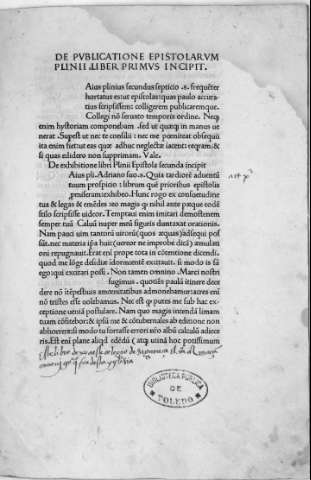 DE PVBLICATIONE EPISTOLARVM
PLINII .LIBER PRIMVS INCIPIT.
Aius plinius secundus septicio .s. frequẽter
hortatus es:ut epistolas:quas paulo accura
tius scripsissem: colligerem publicaremque.
Collegi nõ seruato temporis ordine. Neq;
enim hystoriam componebam .sed ut quæq; in manus ue
nerat. Superest ut nec te consilii : nec me pœniteat obsequii
ita enim fiet:ut eas quæ adhuc neglectæ iacent: reqram: &
si quas addidero non supprimam. Vale.
De exhibitione libri Plinii Epistola secunda incipit
Aius pli. Adriano suo .s. Quia tardiorẽ aduentũ
tuum prospicio : librum quẽ prioribus epistolis
promiseram:exhibeo. Hunc rogo ex consuetudine
tua & legas & emẽdes :eo magis q nihil ante pæque eodẽ
stilo scripsisse uideor. Temptaui enim imitari demostenem
semper tuũ Caluũ nuper meũ figuris duntaxat orationis.
Nam
repugnauit. Erat enĩ prope tota in cõtentione dicendi.
quod me lõgæ desidiæ
ego:qui excitari possẽ . Non tamen omnino .Marci nostri
fugimus . quotiẽs paulũ itinere dece
dere nõ ĩtẽpestiuis amœnitatibus admonebamur:acres enĩ
nõ tristes eẽ uolebamus. Nec est q putes me sub hac ex
ceptione ueniã postulare. Nam quo magis intendã limam
tuam cõfitebor:& ipsũ me & cõtubernales ab editione non
abhorrere:si modo tu fortasse errori nr̃o albũ calculũ adiece
ris. Est enĩ plane aliqd edẽdũ
BIBLIOTECA PUBLICA
DE
TOLEDO